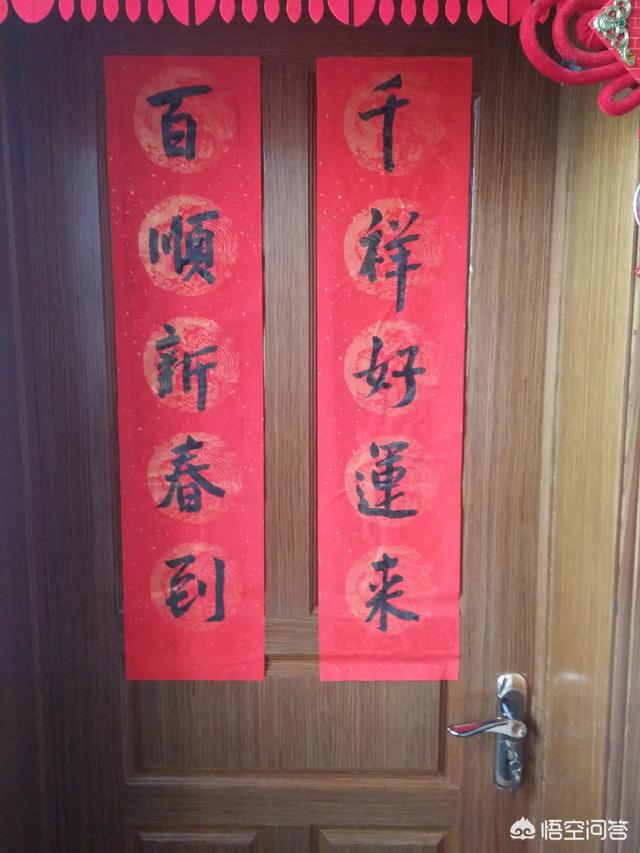 千祥好運来
百順新春到
悟空问答